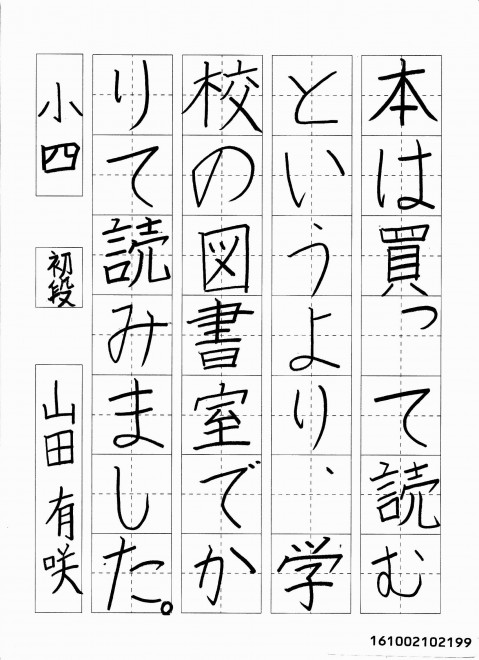 本は買って読む
というより、学
校の図書室でか
りて読みました。
小四
初段
山田有咲
161002102199